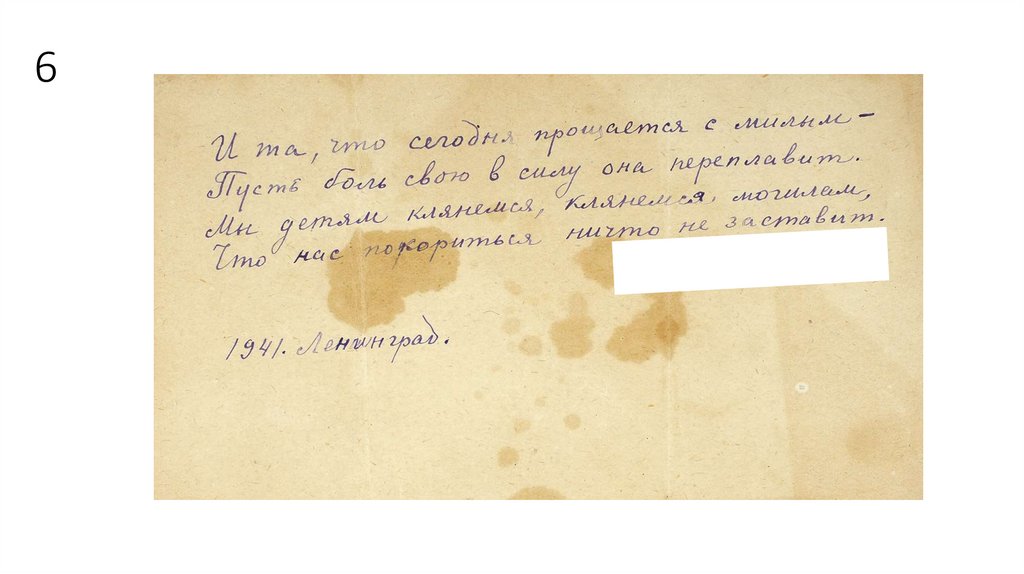 6
И та, что сегодня прощается с милым –
Пусть боль свою в силу она переплавит.
Мы детям клянемся, клянемся могилам,
Что нас покориться ничто не заставит.
1941. Ленинград.